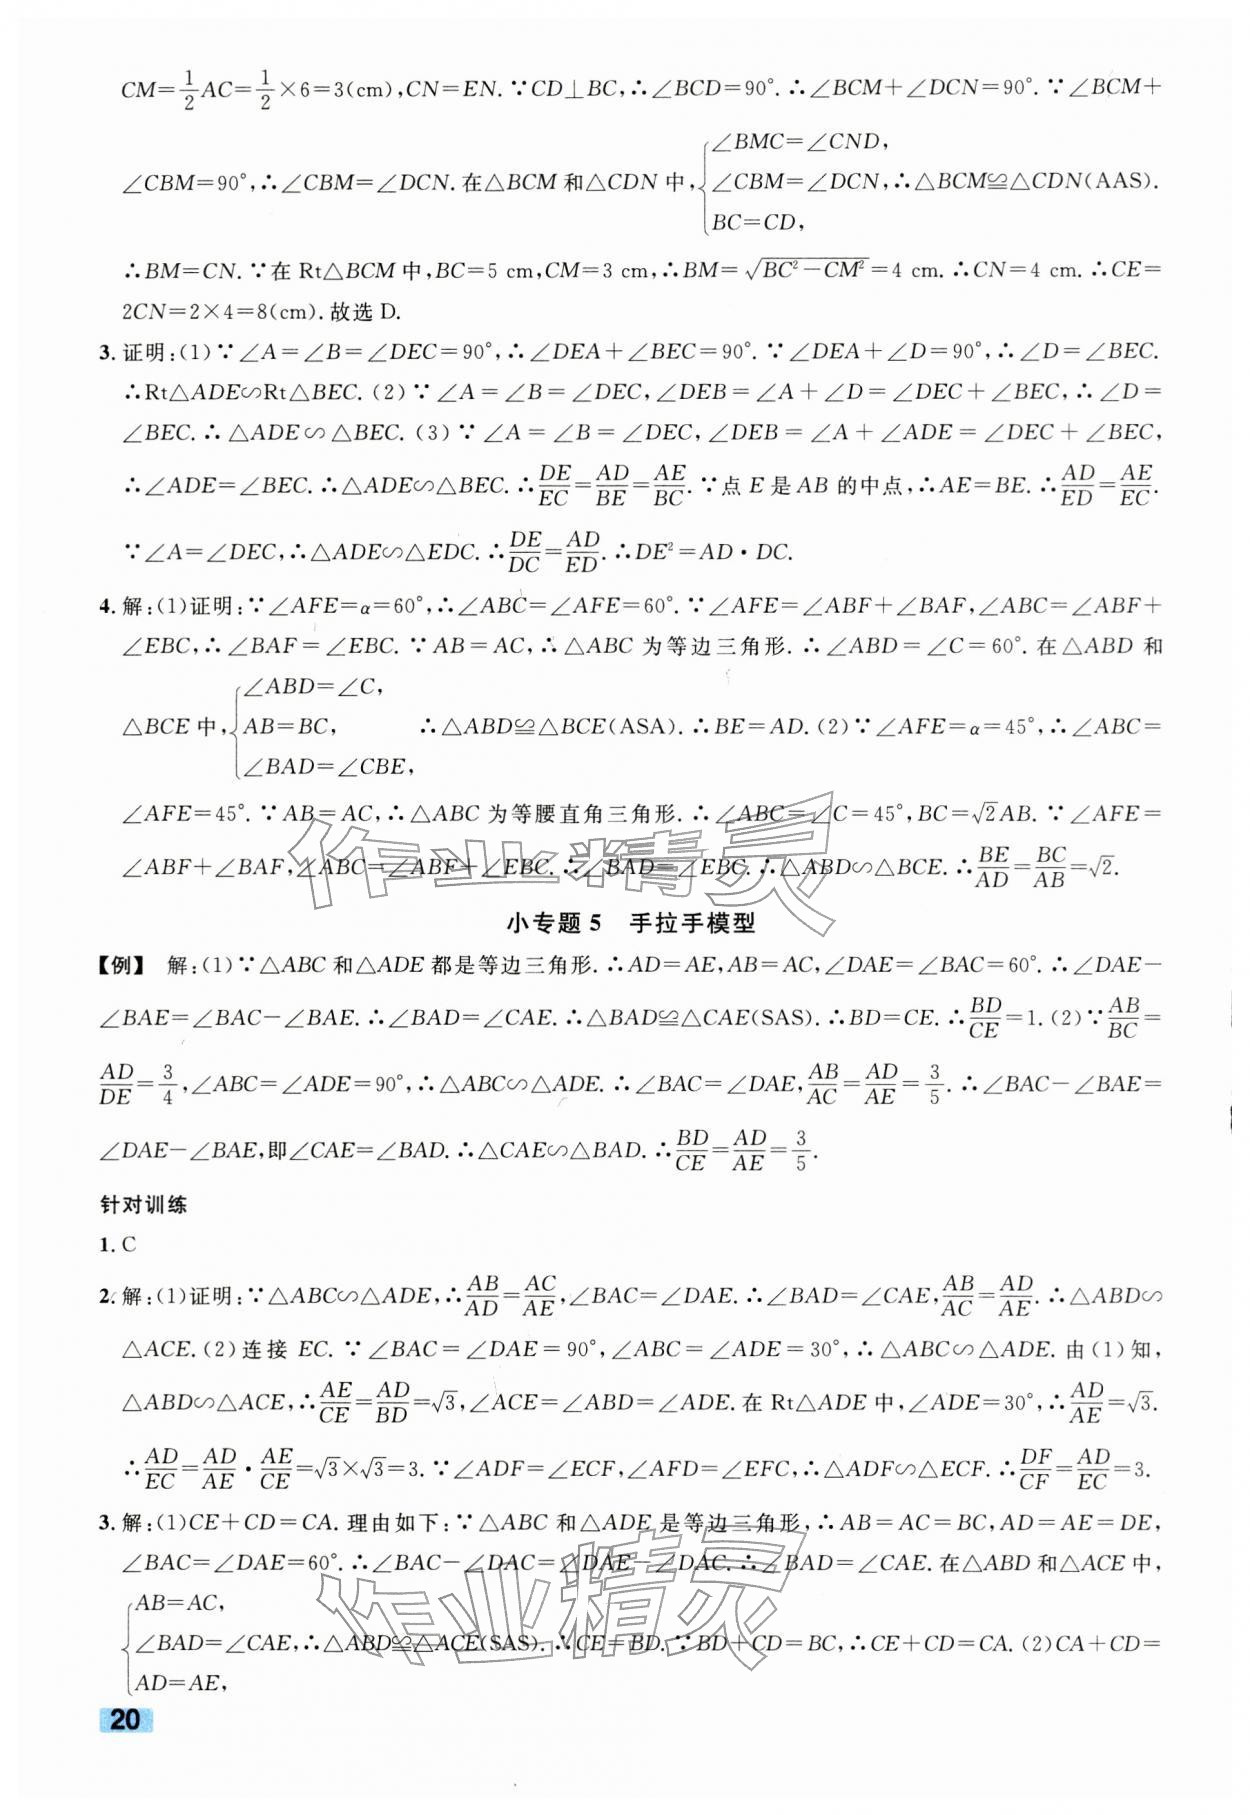 CM=1/2 AC=1/2×6=3(cm),CN=EN.∵CD⊥BC,∴∠BCD=90°.∴∠BCM+∠DCN=90°.∵∠BCM+
∠CBM=90°,∴∠CBM=∠DCN.在△BCM和△CDN中,{∠BMC=∠CND,
∠CBM=∠DCN,∴△BCM≌△CDN(AAS).
BC=CD,
∴BM=CN.∵在Rt△BCM中,BC=5 cm,CM=3 cm,∴BM=√(BC²-CM²)=4 cm.∴CN=4 cm.∴CE=
2CN=2×4=8(cm).故选D.
3.证明:(1)∵∠A=∠B=∠DEC=90°,∴∠DEA+∠BEC=90°.∵∠DEA+∠D=90°,∴∠D=∠BEC.
∴Rt△ADE∽Rt△BEC.(2)∵∠A=∠B=∠DEC,∠DEB=∠A+∠D=∠DEC+∠BEC,∴∠D=
∠BEC.∴△ADE∽△BEC.(3)∵∠A=∠B=∠DEC,∠DEB=∠A+∠ADE=∠DEC+∠BEC,
∴∠ADE=∠BEC.∴△ADE∽△BEC.∴DE/EC=AD/BE=AE/BC.∵点E是AB的中点,∴AE=BE.∴AD/ED=AE/EC.
∵∠A=∠DEC,∴△ADE∽△EDC.∴DE/DC=AD/ED.∴DE²=AD·DC.
4.解:(1)证明:∵∠AFE=α=60°,∴∠ABC=∠AFE=60°.∵∠AFE=∠ABF+∠BAF,∠ABC=∠ABF+
∠EBC,∴∠BAF=∠EBC.∵AB=AC,∴△ABC为等边三角形.∴∠ABD=∠C=60°.在△ABD和
△BCE中,{∠ABD=∠C,
AB=BC, ∴△ABD≌△BCE(ASA).∴BE=AD.(2)∵∠AFE=α=45°,∴∠ABC=
∠BAD=∠CBE,
∠AFE=45°.∵AB=AC,∴△ABC为等腰直角三角形.∴∠ABC=∠C=45°,BC=√2AB.∵∠AFE=
∠ABF+∠BAF,∠ABC=∠ABF+∠EBC.∴∠BAD=∠EBC.∴△ABD∽△BCE.∴BE/AD=BC/AB=√2.
小专题5 手拉手模型
【例】 解:(1)∵△ABC和△ADE都是等边三角形.∴AD=AE,AB=AC,∠DAE=∠BAC=60°.∴∠DAE-
∠BAE=∠BAC-∠BAE.∴∠BAD=∠CAE.∴△BAD≌△CAE(SAS).∴BD=CE.∴BD/CE=1.(2)∵AB/BC=
AD/DE=3/4,∠ABC=∠ADE=90°,∴△ABC∽△ADE.∴∠BAC=∠DAE,AB/AC=AD/AE=3/5.∴∠BAC-∠BAE=
∠DAE-∠BAE,即∠CAE=∠BAD.∴△CAE∽△BAD.∴BD/CE=AD/AE=3/5.
针对训练
1.C
2.解:(1)证明:∵△ABC∽△ADE,∴AB/AD=AC/AE,∠BAC=∠DAE.∴∠BAD=∠CAE,AB/AC=AD/AE.∴△ABD∽
△ACE.(2)连接EC.∵∠BAC=∠DAE=90°,∠ABC=∠ADE=30°,∴△ABC∽△ADE.由(1)知,
△ABD∽△ACE,∴AE/CE=AD/BD=√3,∠ACE=∠ABD=∠ADE.在Rt△ADE中,∠ADE=30°,∴AD/AE=√3.
∴AD/EC=AD/AE·AE/CE=√3×√3=3.∵∠ADF=∠ECF,∠AFD=∠EFC,∴△ADF∽△ECF.∴DF/CF=AD/EC=3.
3.解:(1)CE+CD=CA.理由如下:∵△ABC和△ADE是等边三角形,∴AB=AC=BC,AD=AE=DE,
∠BAC=∠DAE=60°.∴∠BAC-∠DAC=∠DAE-∠DAC.∴∠BAD=∠CAE.在△ABD和△ACE中,
{AB=AC,
∠BAD=∠CAE,∴△ABD≌△ACE(SAS).∴CE=BD.∵BD+CD=BC,∴CE+CD=CA.(2)CA+CD=
AD=AE,
20
作业精灵
作业精灵